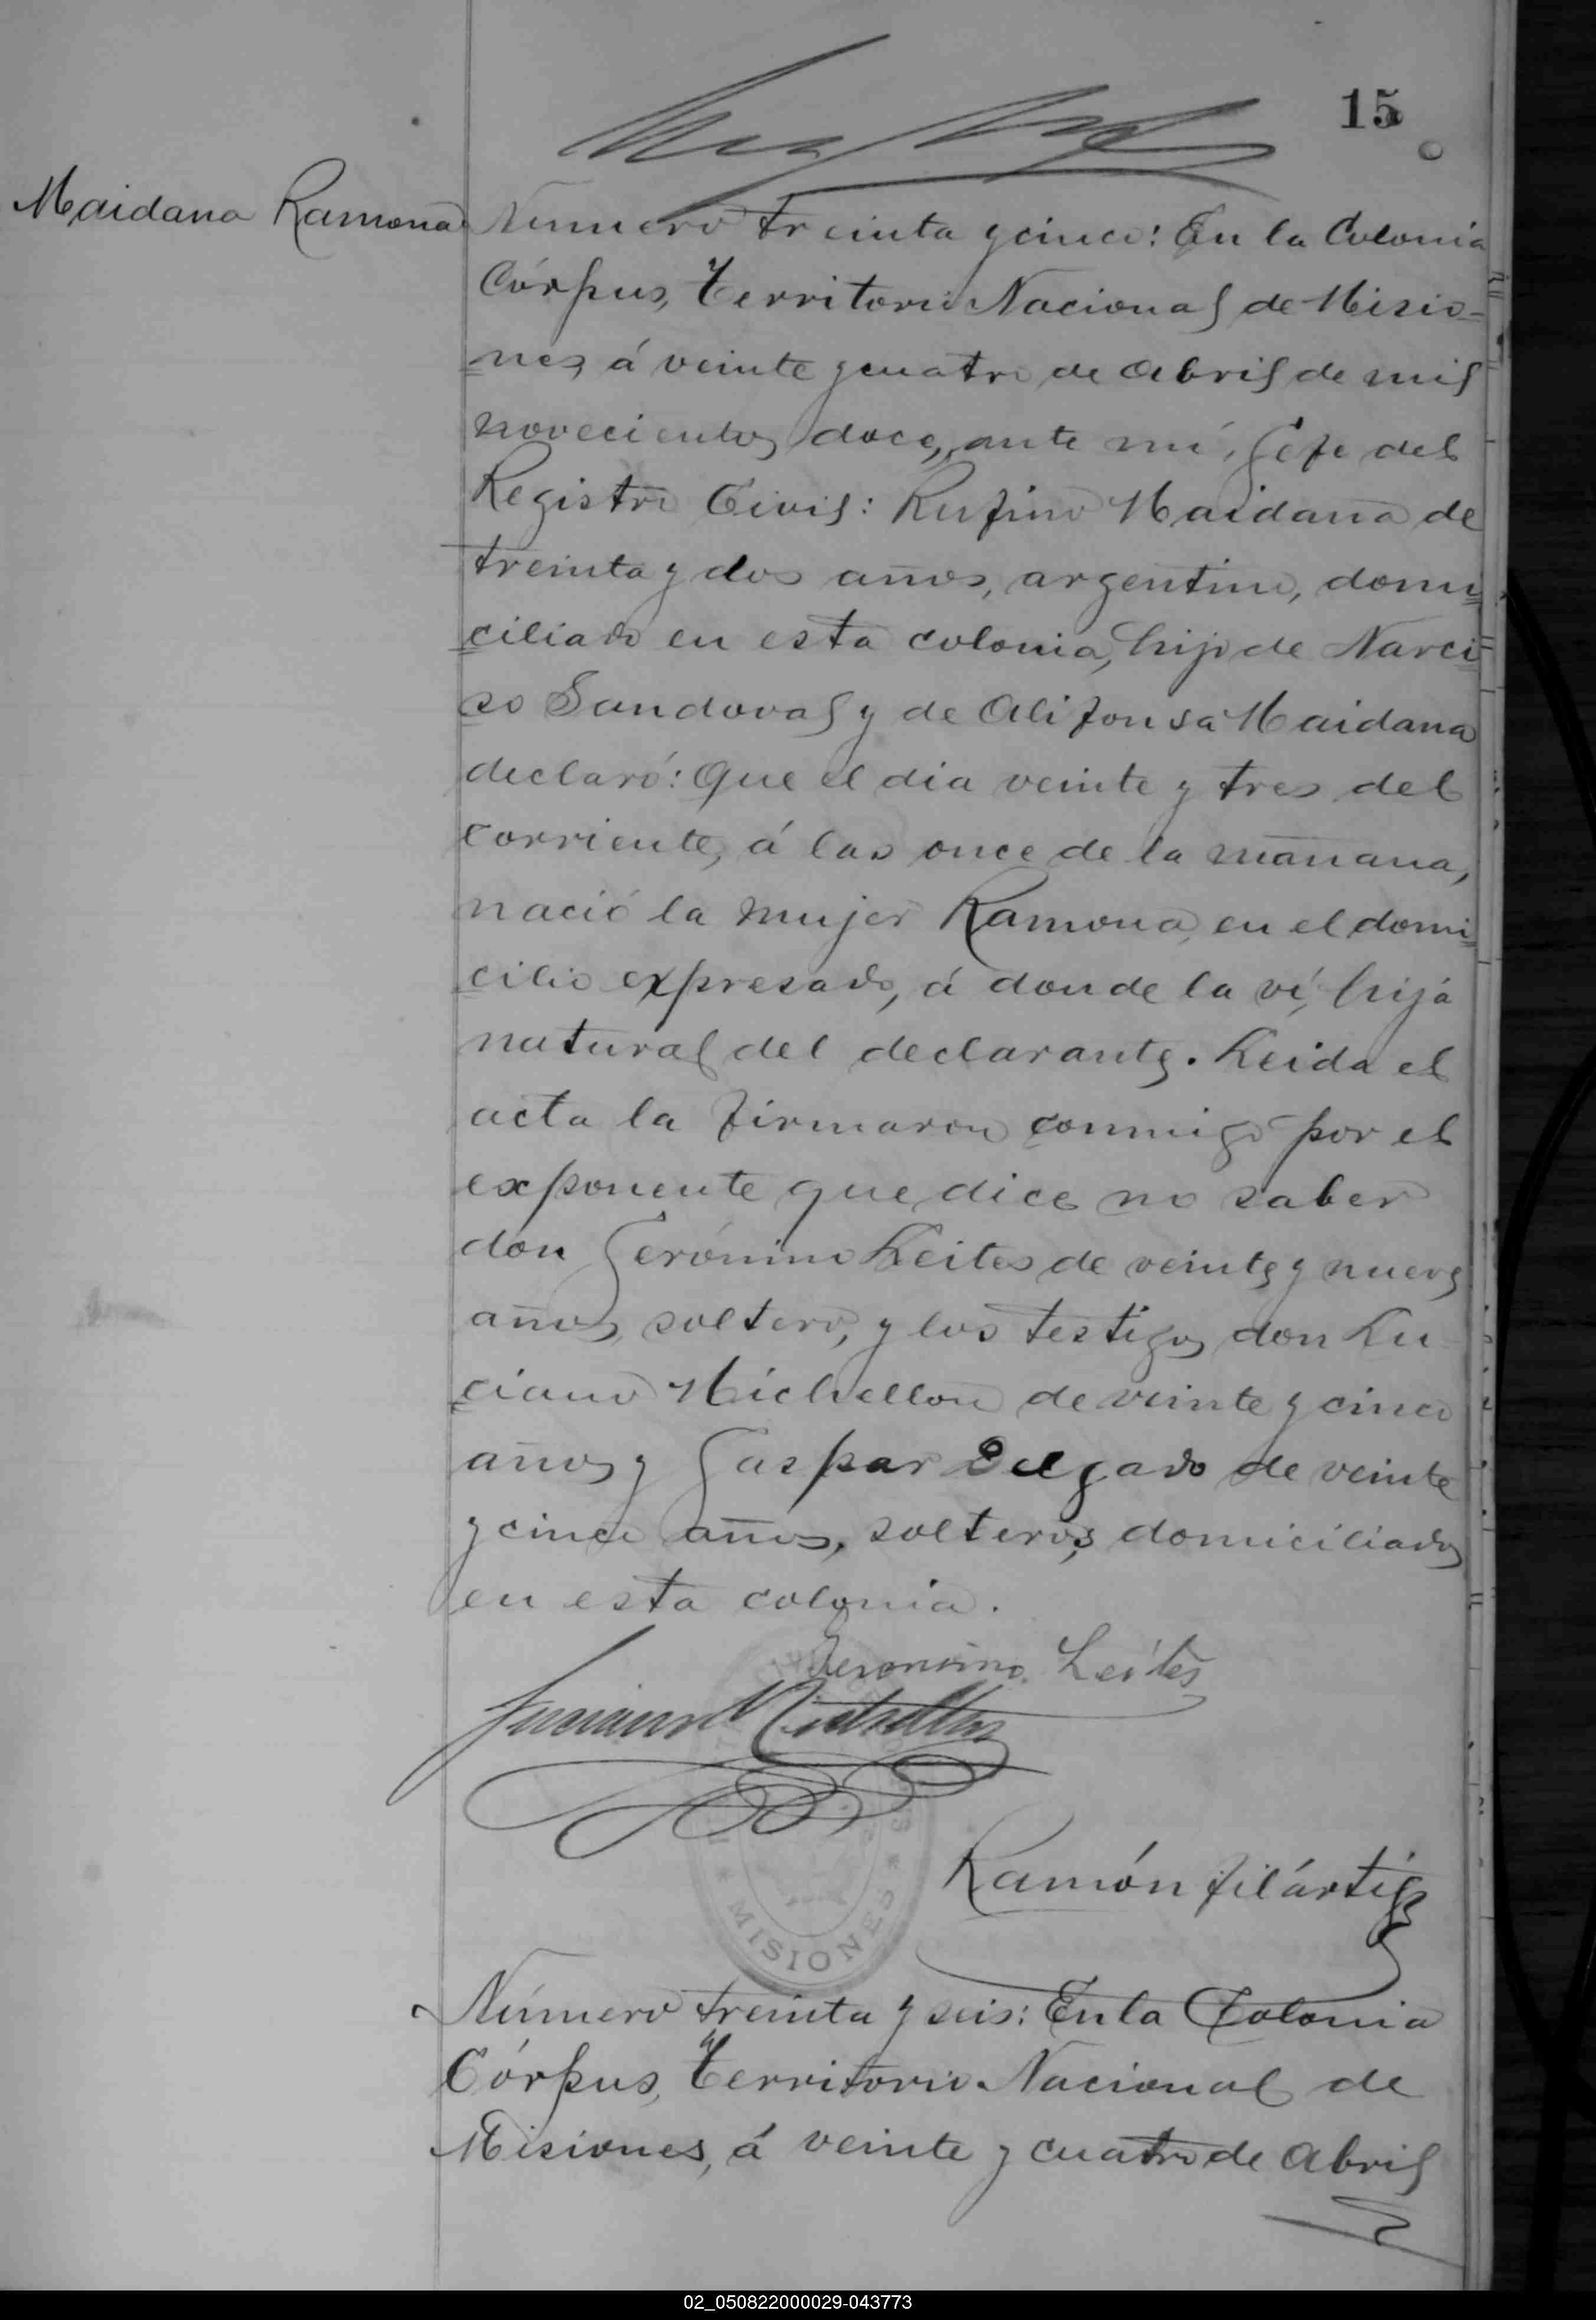 15
Maidana Ramona
Número treinta y cinco: En la Colonia
Córpus, Territorio Nacional de Misio-
nes, á veinte y cuatro de Abril de mil
novecientos doce, ante mí, Gefe del
Registro Civil: Rufino Maidana de
treinta y dos años, argentino, domi
ciliado en esta colonia, hijo de Narci
so Sandoval y de Alifonsa Maidana
declaró: Que el dia veinte y tres del
corriente, á las once de la mañana,
nació la mujer Ramona, en el domi
cilio expresado, á donde la ví, hija
natural del declarante. Leida el
acta la firmaron conmigo por el
exponente que dice no saber
don Gerónimo Leites de veinte y nueve
años, soltero, y los testigos don Lu
ciano Michellon de veinte y cinco
años y Gaspar Delgado de veinte
y cinco años, solteros, domiciliados
en esta colonia.
Jeronimo Leites
Luciano Michellon
Ramón Filártiga
MISIONES
Número treinta y seis: En la Colonia
Córpus, Territorio Nacional de
Misiones, á veinte y cuatro de Abril
02_050822000029-043773